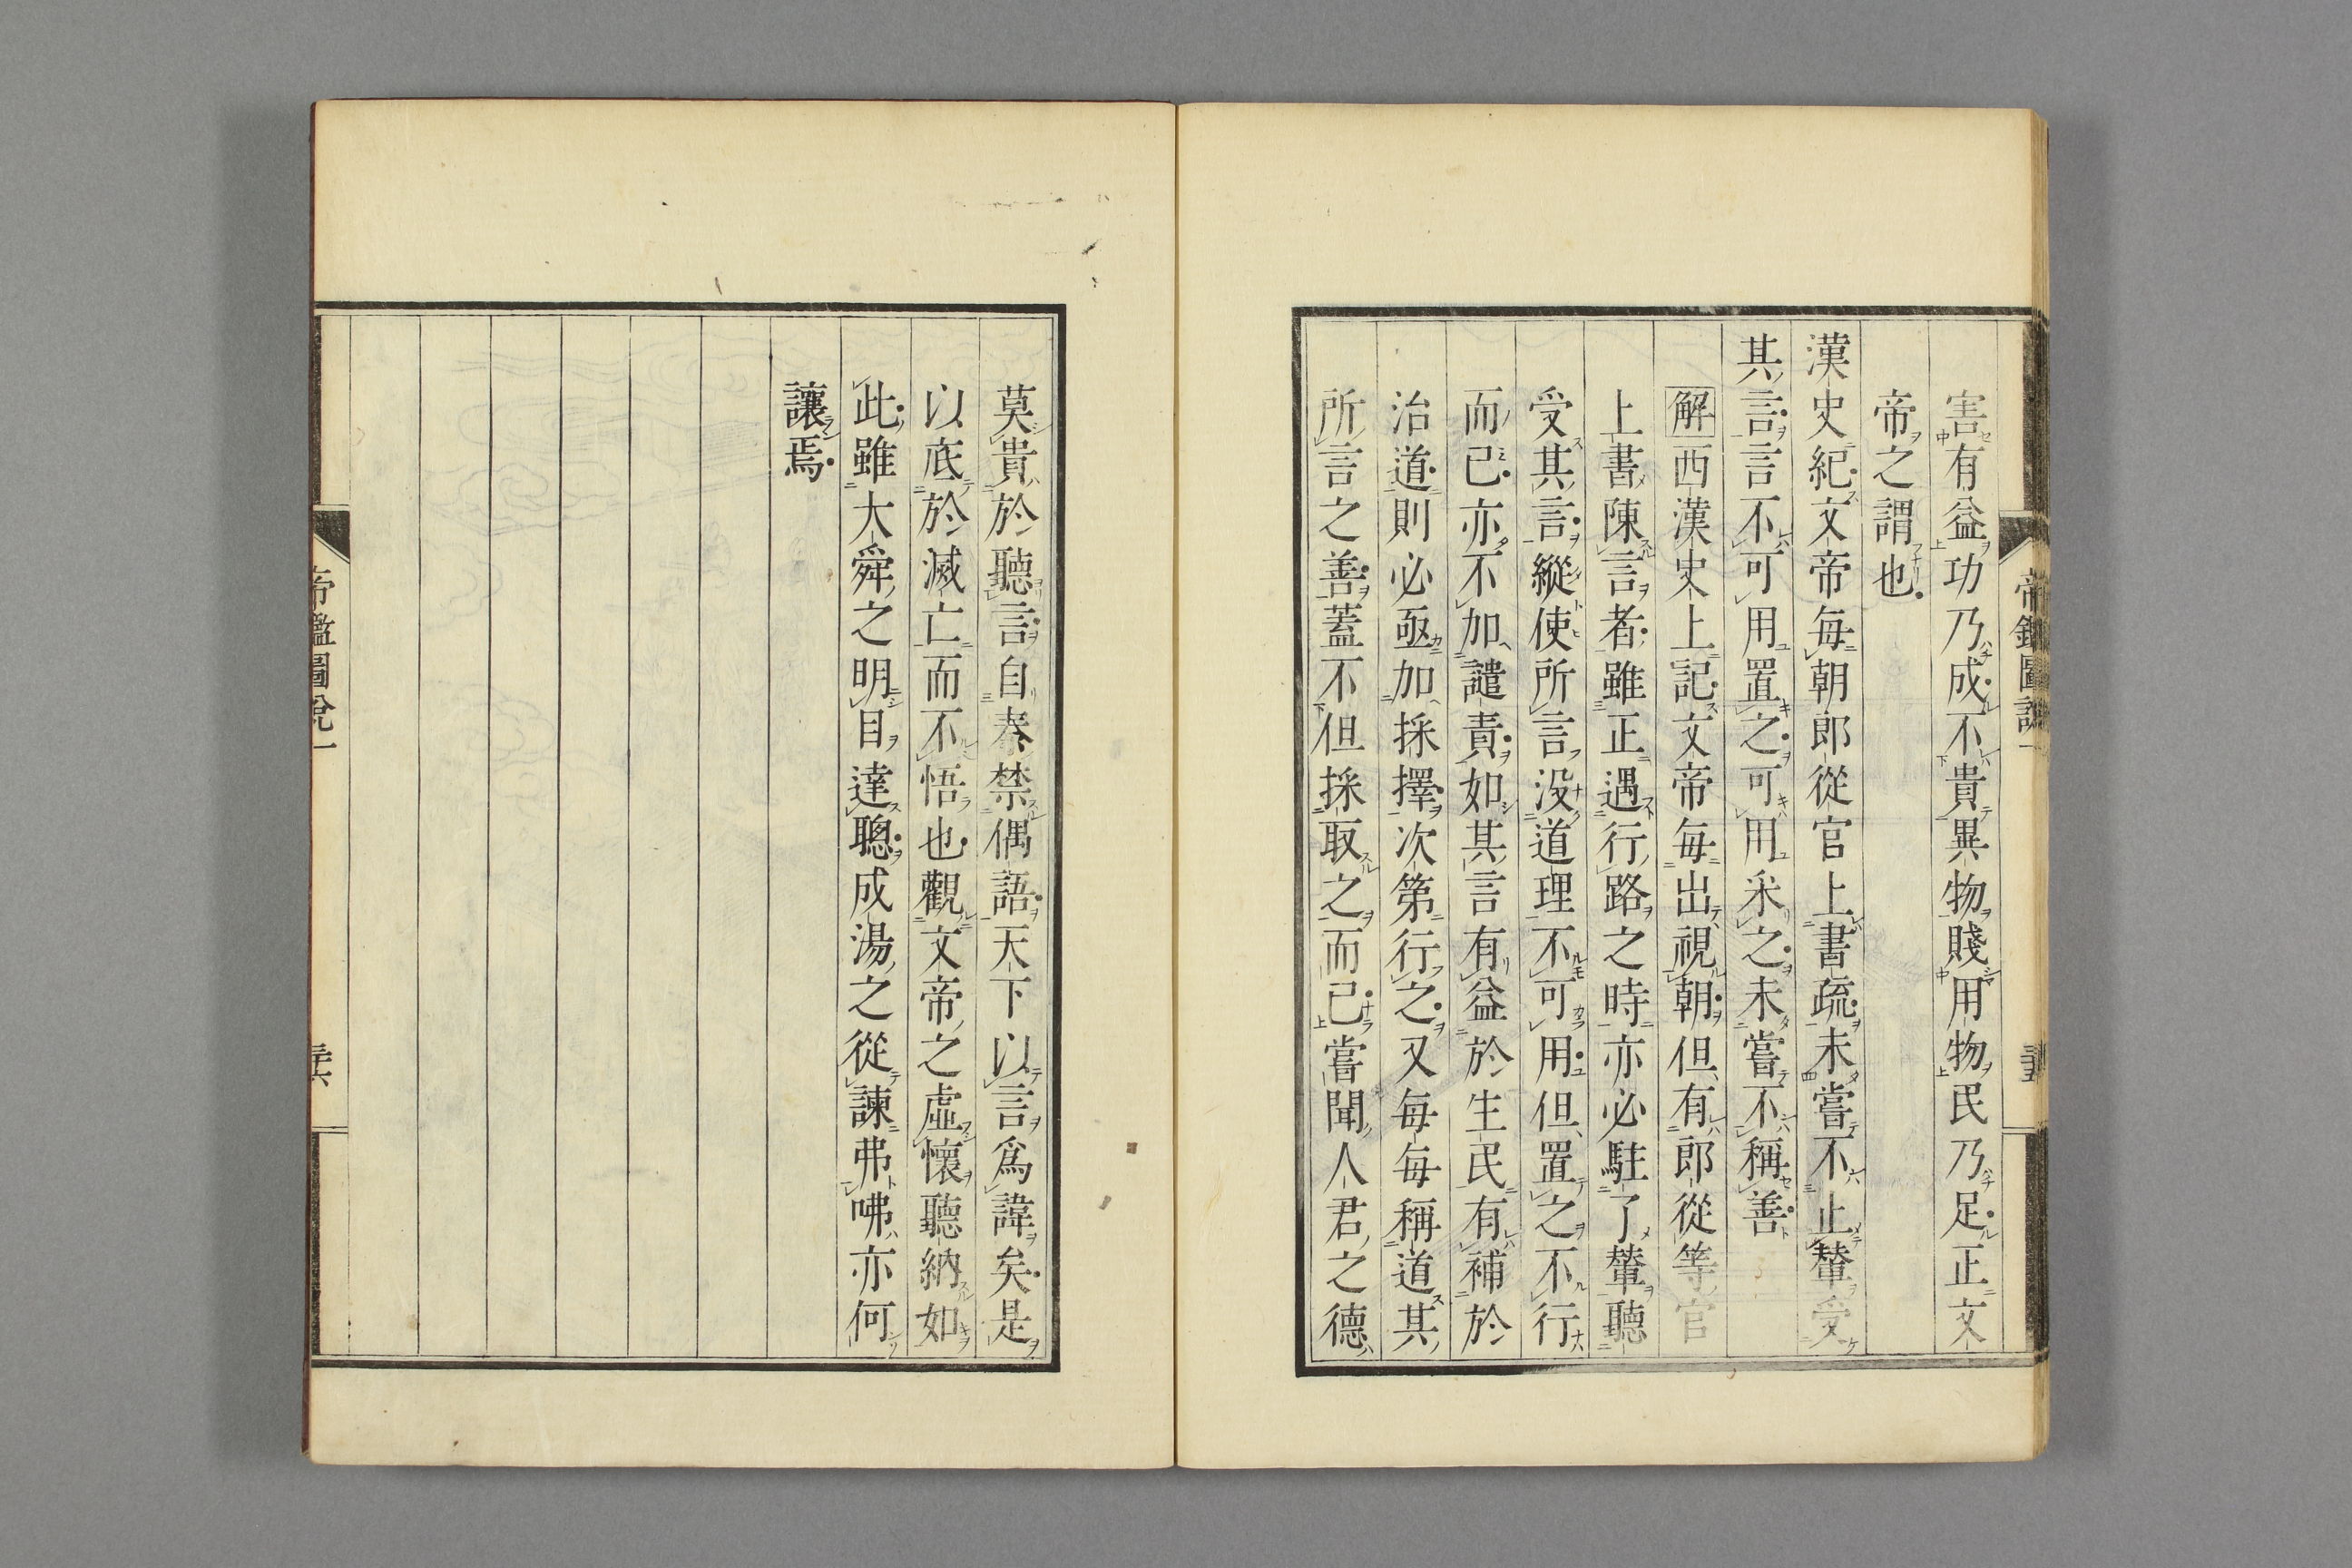 帝鑑圖說一
害有益功乃成不貴異物賤用物民乃足正文
帝之謂也
漢史紀文帝每朝郎從官上書疏未嘗不止輦受
其言言不可用置之可用采之未嘗不稱善
解西漢史上記文帝每出視朝但有郎從等官
上書陳言者雖正遇行路之時亦必駐了輦聽
受其言縱使所言没道理不可用但置之不行
而已亦不加譴責如其言有益於生民有補於
治道則必亟加採擇次第行之又每每稱道其
所言之善蓋不但採取之而已嘗聞人君之德
莫貴於聽言自秦禁偶語天下以言爲諱矣是
以底於滅亡而不悟也觀文帝之虛懷聽納如
此雖大舜之明目達聰成湯之從諫弗咈亦何
讓焉
帝鑑圖說一